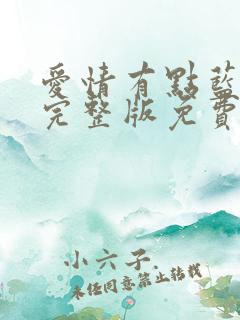 愛情有點藍
完整版免費
小六子.
未經同意禁止轉載